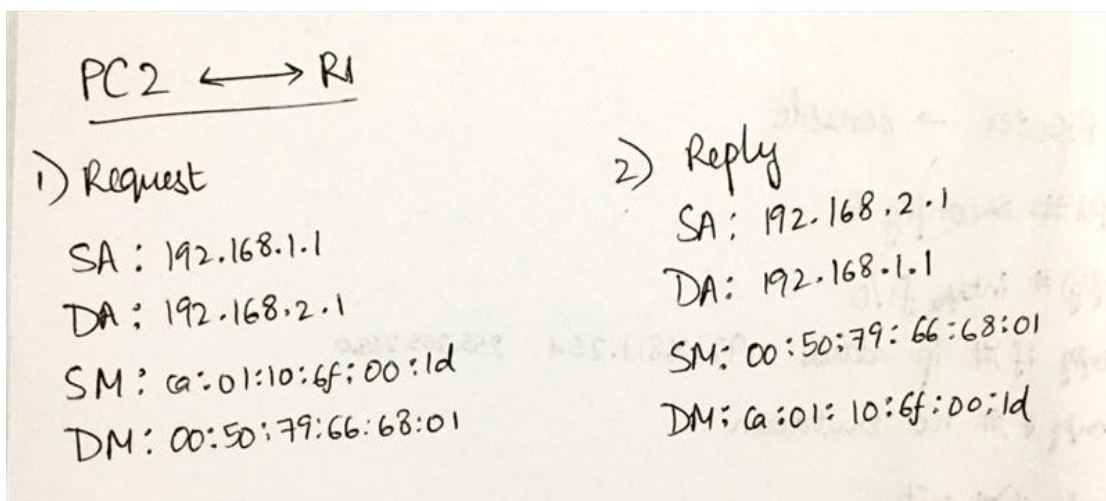 PC2 ↔ R1
1) Request
SA : 192.168.1.1
DA : 192.168.2.1
SM : ca:01:10:6f:00:1d
DM : 00:50:79:66:68:01
2) Reply
SA: 192.168.2.1
DA: 192.168.1.1
SM: 00:50:79:66:68:01
DM: ca:01:10:6f:00:1d